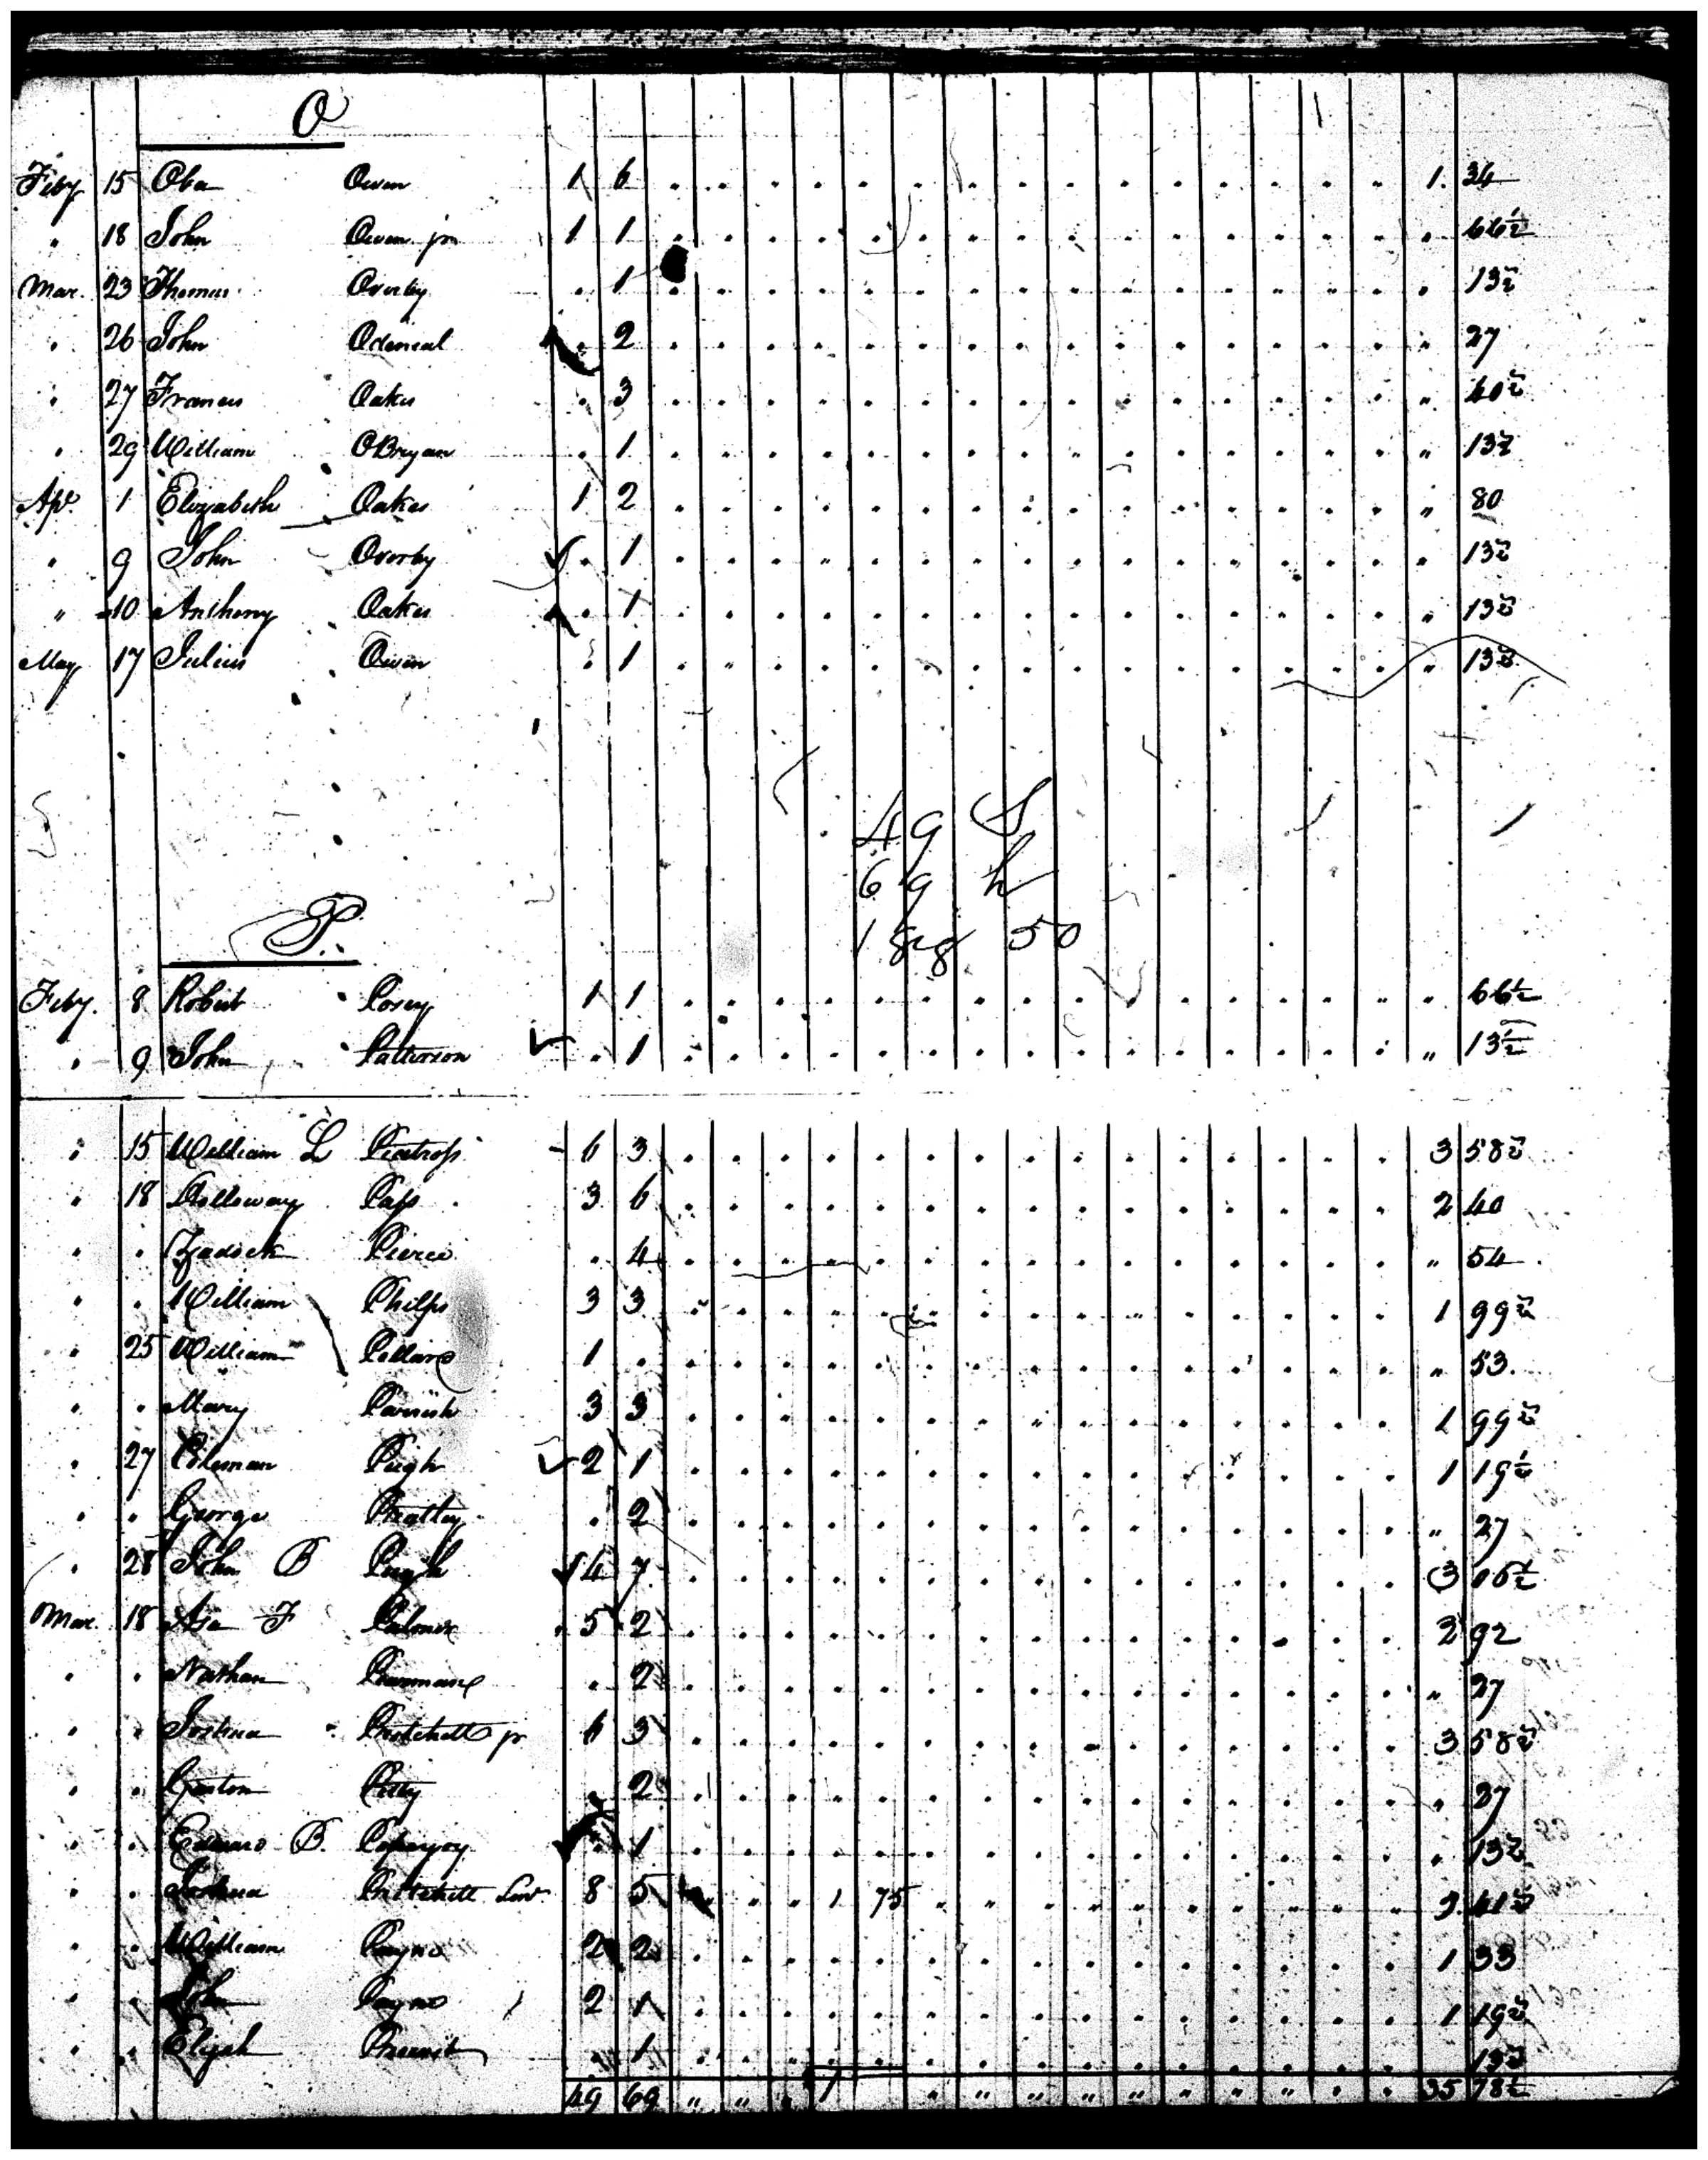 O
Feby 15 Oba Owen 1 6 . . . . . . . . . . . . . . 1. 34
" 18 John Owen jr 1 1 . . . . . . . . . . . . . . " 66½
Mar. 23 Thomas Overby . 1 . . . . . . . . . . . . . . " 13½
" 26 John Odeneal . 2 . . . . . . . . . . . . . . " 27
" 27 Francis Oakes . 3 . . . . . . . . . . . . . . " 40½
" 29 William OBryan . 1 . . . . . . . . . . . . . . " 13½
Apl. 1 Elizabeth Oakes 1 2 . . . . . . . . . . . . . . " 80
" 9 John Overby . 1 . . . . . . . . . . . . . . " 13½
" 10 Anthony Oakes . 1 . . . . . . . . . . . . . . " 13½
May 17 Julius Owen . 1 . . . . . . . . . . . . . . " 13½
49 S
69 h
1 gig 50
P.
Feby. 8 Robert Posey 1 1 . . . . . . . . . . . . . . " 66½
" 9 John Patterson . 1 . . . . . . . . . . . . . . " 13½
" 15 William L Peatross 6 3 . . . . . . . . . . . . . . 3 58½
" 18 Holloway Pass 3 6 . . . . . . . . . . . . . . 2 40
" " Zadock Pierce . 4 . . . . . . . . . . . . . . " 54
" " William Philps 3 3 . . . . . . . . . . . . . . 1 99½
" 25 William Pollard 1 . . . . . . . . . . . . . . . " 53.
" " Mary Parrish 3 3 . . . . . . . . . . . . . . 1 99½
" 27 Coleman Pugh 2 1 . . . . . . . . . . . . . . 1 19½
" " George Prattey . 2 . . . . . . . . . . . . . . " 27
" 28 John B Pugh 4 7 . . . . . . . . . . . . . . 3 06½
Mar. 18 Asa F Palmer 5 2 . . . . . . . . . . . . . . 2 92
" " Nathan . 2 . . . . . . . . . . . . . . " 27
" " Joshua Pritchett jr 6 3 . . . . . . . . . . . . . . 3 58½
" " Petty . 2 . . . . . . . . . . . . . . " 27
" " Edward B. Popejoy . 1 . . . . . . . . . . . . . . " 13½
" " Joshua Pritchett Senr 8 5 " " " 1 75 " " " " " " " " " 41½
" " William Payne 2 2 . . . . . . . . . . . . . . 1 33
" " John Payne 2 1 . . . . . . . . . . . . . . 1 19½
" " Elijah Prewit . 1 . . . . . . . . . . . . . . 13½
49 69 " " " 1 " " " " " " " " " " 35 78½